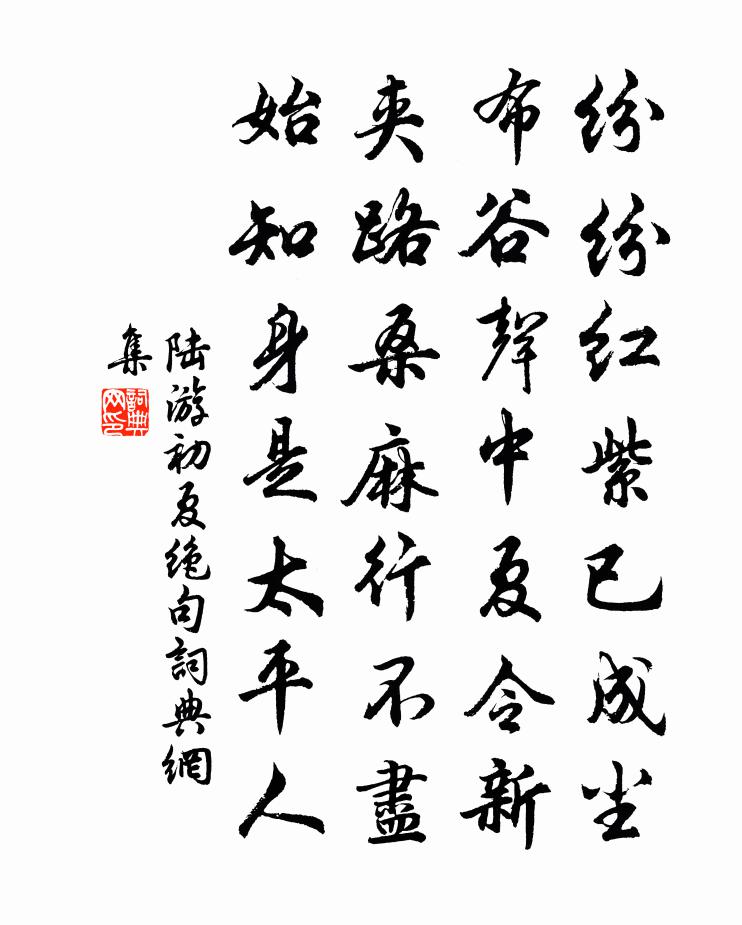 纷纷红紫已成尘
布谷聲中夏令新
夹路桑麻行不盡
始知身是太平人
陆游初夏绝句詞典網
集
詞典网印